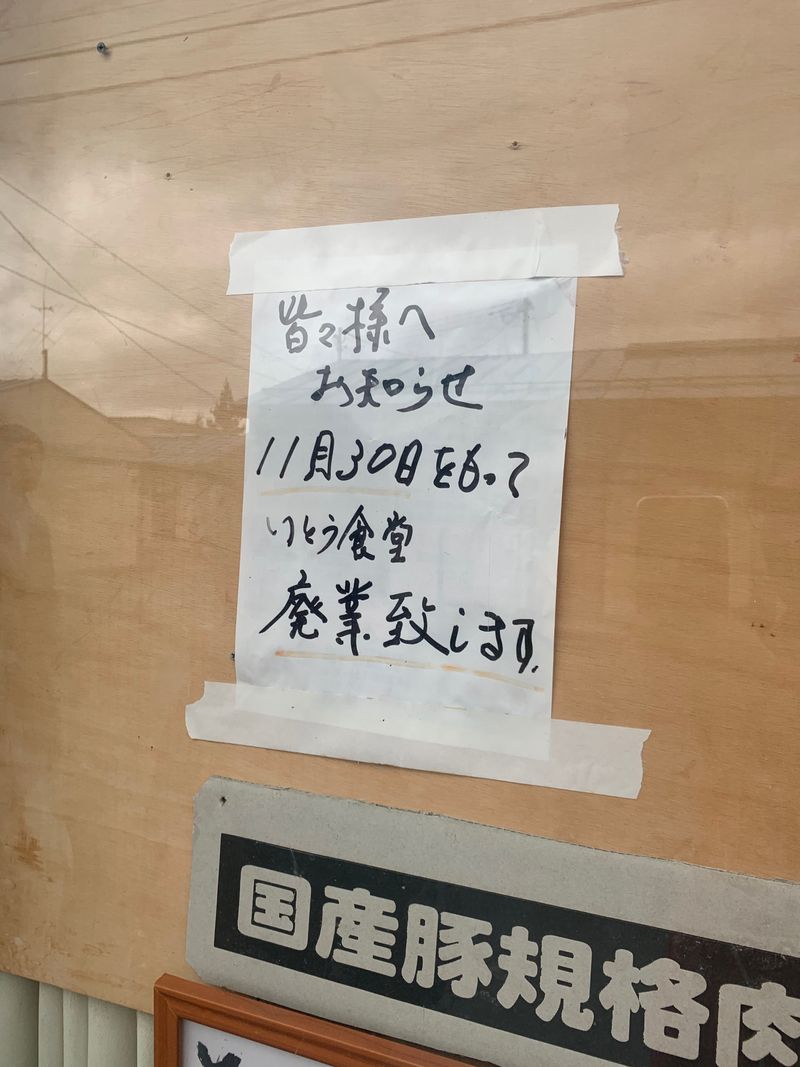 皆々様へ
お知らせ
11月30日をもって
いとう食堂
廃業致します.
国産豚規格肉